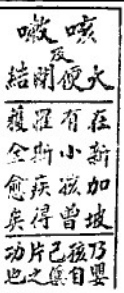 咳嗽
及
大便閉結
在新加坡
有小孩曾
罹斯疾得
獲全愈矣
乃嬰
孩自
己藥
片之
功也